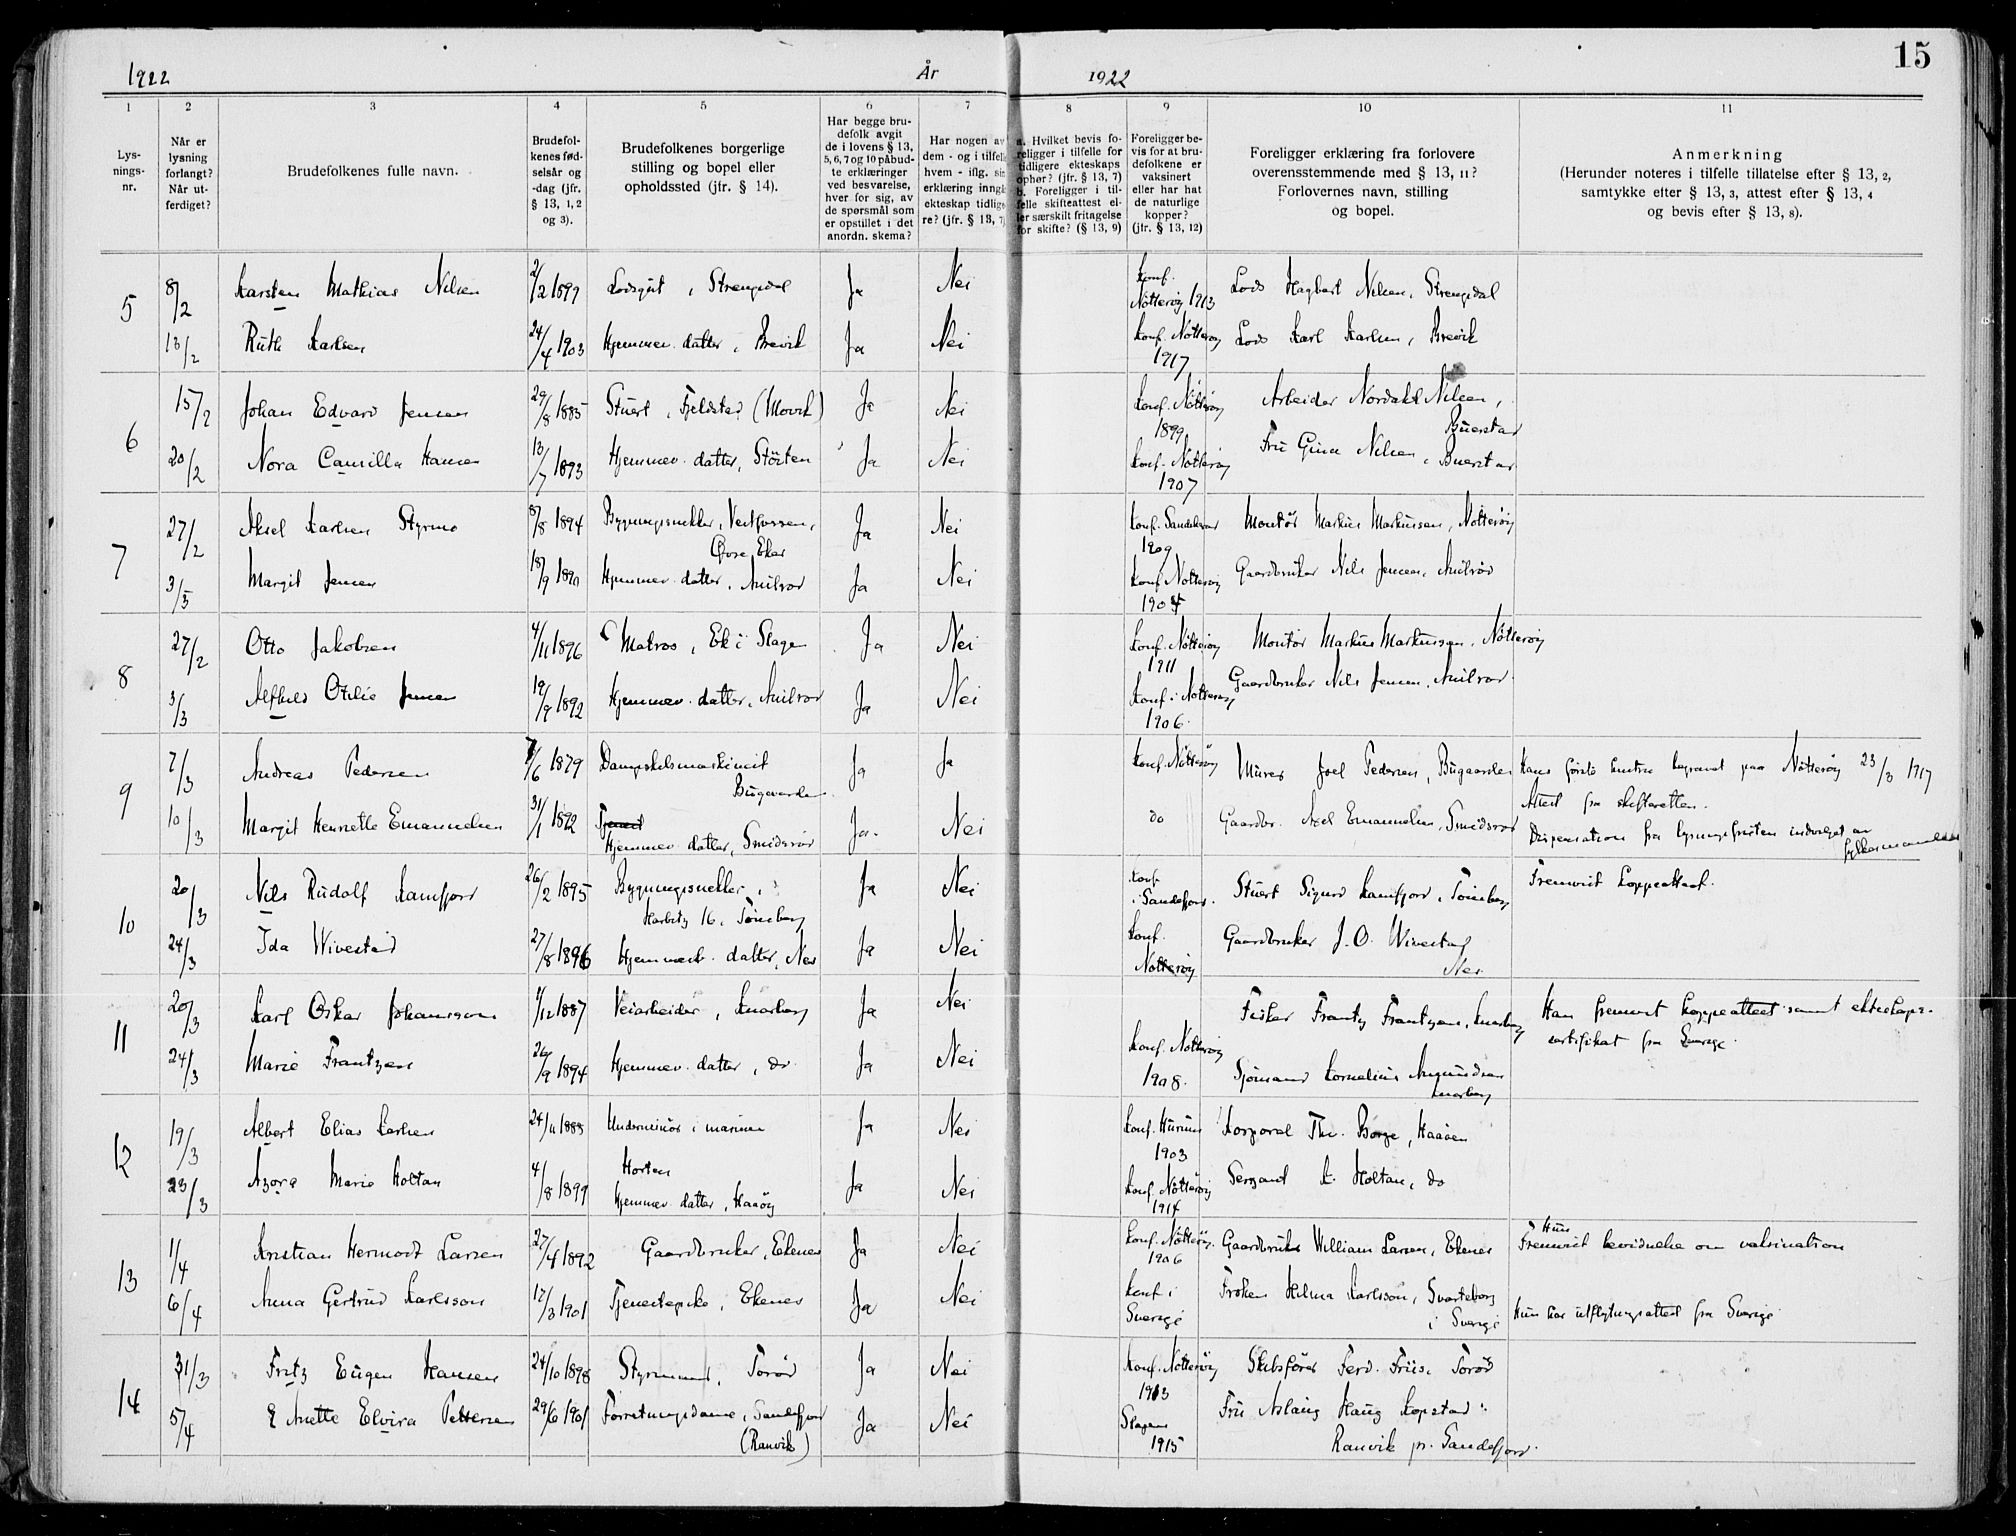 15
1922
År
1922
1
2
3
4
5
6
7
8
9
10
11
Lys-
nings-
nr.
Når er
lysning
forlangt?
Når ut-
ferdiget?
Brudefolkenes fulle navn.
Brudefol-
kenes fød-
selsår og
-dag (jfr.
§ 13, 1, 2
og 3).
Brudefolkenes borgerlige
stilling og bopel eller
opholdssted (jfr. § 14).
Har begge bru-
defolk avgit
de i lovens § 13,
5, 6, 7 og 10 påbud-
te erklæringer
ved besvarelse,
hver for sig, av
de spørsmål som
er opstillet i det
anordn. skema?
Har nogen av
dem - og i tilfelle
hvem - iflg. sin
erklæring inngå
ekteskap tidlige
re? (jfr. § 13, 7)
a. Hvilket bevis fo-
religger i tilfelle for
tidligere ekteskaps
ophør? (jfr. § 13, 7)
b. Foreligger i til-
felle skifteattest el-
ler særskilt fritagelse
for skifte? (§ 13, 9)
Foreligger be-
vis for at bru-
defolkene er
vaksinert
eller har hat
de naturlige
kopper?
(jfr. § 13, 12)
Foreligger erklæring fra forlovere
overensstemmende med § 13, 11?
Forlovernes navn, stilling
og bopel.
Anmerkning
(Herunder noteres i tilfelle tillatelse efter § 13, 2,
samtykke efter § 13, 3, attest efter § 13, 4
og bevis efter § 13, 8).
5 8/2 Karsten Mathias Nilsen 2/2 1899 Lodsgut, Strengsdal Ja Nei Konf. Nötteröy 1913 Lods Hagbart Nilsen, Strengsdal
13/2 Ruth Karlsen 24/4 1903 Hjemmev. datter, Brevik Ja Nei Konf. Nötteröy 1917 Lods Karl Karlsen, Brevik
6 15/2 Johan Edvard Jensen 29/8 1885 Stuert, Fjeldstad (Movik) Ja Nei Konf. Nötteröy 1899 Arbeider Nordahl Nilsen, Buerstad
20/2 Nora Camilla Hansen 13/7 1893 Hjemmev. datter, Stöiten Ja Nei Konf. Nötteröy 1907 Fru Gina Nilsen, Buerstad
7 27/2 Aksel Karlsen Styrmo 8/8 1894 Bygningssnekker, Vestfossen, Övre Eker Ja Nei Konf. 1909 Montör Markus Markussen, Nötteröy
3/3 Margit Jensen 18/9 Hjemmev. datter, Ja Nei Konf. Nötteröy 1904 Gaardbruker Nils Jensen,
8 27/2 Otto Jakobsen 4/11 1896 Matros, Ek i Slagen Ja Nei Konf. Nötteröy 1911 Montör Markus Markussen, Nötteröy
3/3 Alfhild Otilie Jensen 19/9 1892 Hjemmev. datter, Ja Nei Konf. i Nötteröy 1906. Gaardbruker Nils Jensen,
9 7/3 Andreas Pedersen 7/6 1879 Dampskibsmaskinist Bugaarden Ja Ja Konf. Nötteröy Murer Joel Pedersen, Bugaarden Hans förste hustru begravet paa Nötteröy 23/3 1917
Attest fra skifteretten.
10/3 Margit Henriette Emanuelsen 31/1 1892 Hjemmev. datter, Smidsröd Ja. Nei do Gaardbr. Axel Emanuelsen, Smidsröd Dispensation fra lysningsfristen indvilget av fylkesmanden
10 20/3 Nils Rudolf Kamfjord 26/2 1895 Bygningssnekker, 16, Tönsberg Ja Nei Konf. i Sandefjord. Stuert Sigurd Kamfjord, Tönsberg Fremvist koppeattest.
24/3 Ida Wivestad 27/8 1896 Hjemmev. datter, Nes Ja Nei Konf. Nötteröy Gaardbruker J. O. Wivestad Nes.
11 20/3 Karl Oskar Johansson 1/12 1887 Veiarbeider, Knarberg Ja Nei Fisker Frantz Frantzen, Knarberg Han fremvist koppeattest samt ekteskaps-
sertifikat fra Sverige.
24/3 Marie Frantzen 26/9 1894 Hjemmev. datter, do. Ja Nei Konf. Nötteröy 1908. Sjömand Kornelius Amundsen Knarberg
12 19/3 Albert Elias Karlsen 24/11 1888 Underminör i marinen Horten Ja Nei Konf. Hurum 1903 Korporal Thv. Borge, Haaöen
23/3 Azora Marie Holtan 4/8 1899 Hjemmev. datter, Haaöy Ja Nei Konf. Nötteröy 1914 Sersjant K. Holtan, do
13 1/4 Kristian Hermodt Larsen 27/4 1892 Gaardbruker, Ekenes Ja Nei Konf. Nötteröy. 1906 Gaardbruker William Larsen, Ekenes Hun Fremvist bevidnelse om vaksination
6/4 Anna Gertrud Karlsson 17/3 1901 Tjenestepike, Ekenes Ja Nei Konf i Sverige Fröken Hilma Karlsson, Svarteborg i Sverige Hun har utflytningsattest fra Sverige
14 31/3 Fritz Eugen Hansen 24/10 1898 Styrmand, Torød Ja Nei Konf. Nötteröy 1913 Skibsförer Ferd. Friis, Torød
5/4 Anette Elvira Pettersen 29/6 1901 Forretningsdame, Sandefjord (Ranvik) Ja Nei Slagen 1915 Fru Aslaug Haug Kopstad
Ranvik pr. Sandefjord.